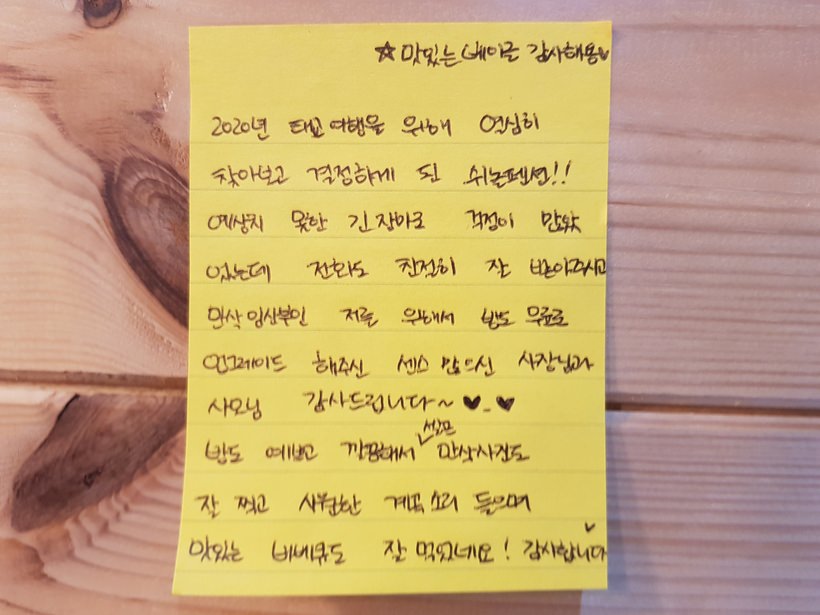 ☆ 맛있는 베이글 감사해용♥
2020년 태교여행을 위해 열심히
찾아보고 결정하게 된 쉬놀펜션!!
예상치 못한 긴 장마로 걱정이 많았
었는데 전화도 친절히 잘 받아주시고
만삭 임산부인 저를 위해서 방도 무료로
업그레이드 해주신 센스 많으신 사장님과
사모님 감사드립니다~ ♥_♥
방도 예쁘고 깔끔해서 셀프 만삭사진도
잘 찍고 시원한 계곡소리 들으며
맛있는 바베큐도 잘 먹었네요! 감사합니다